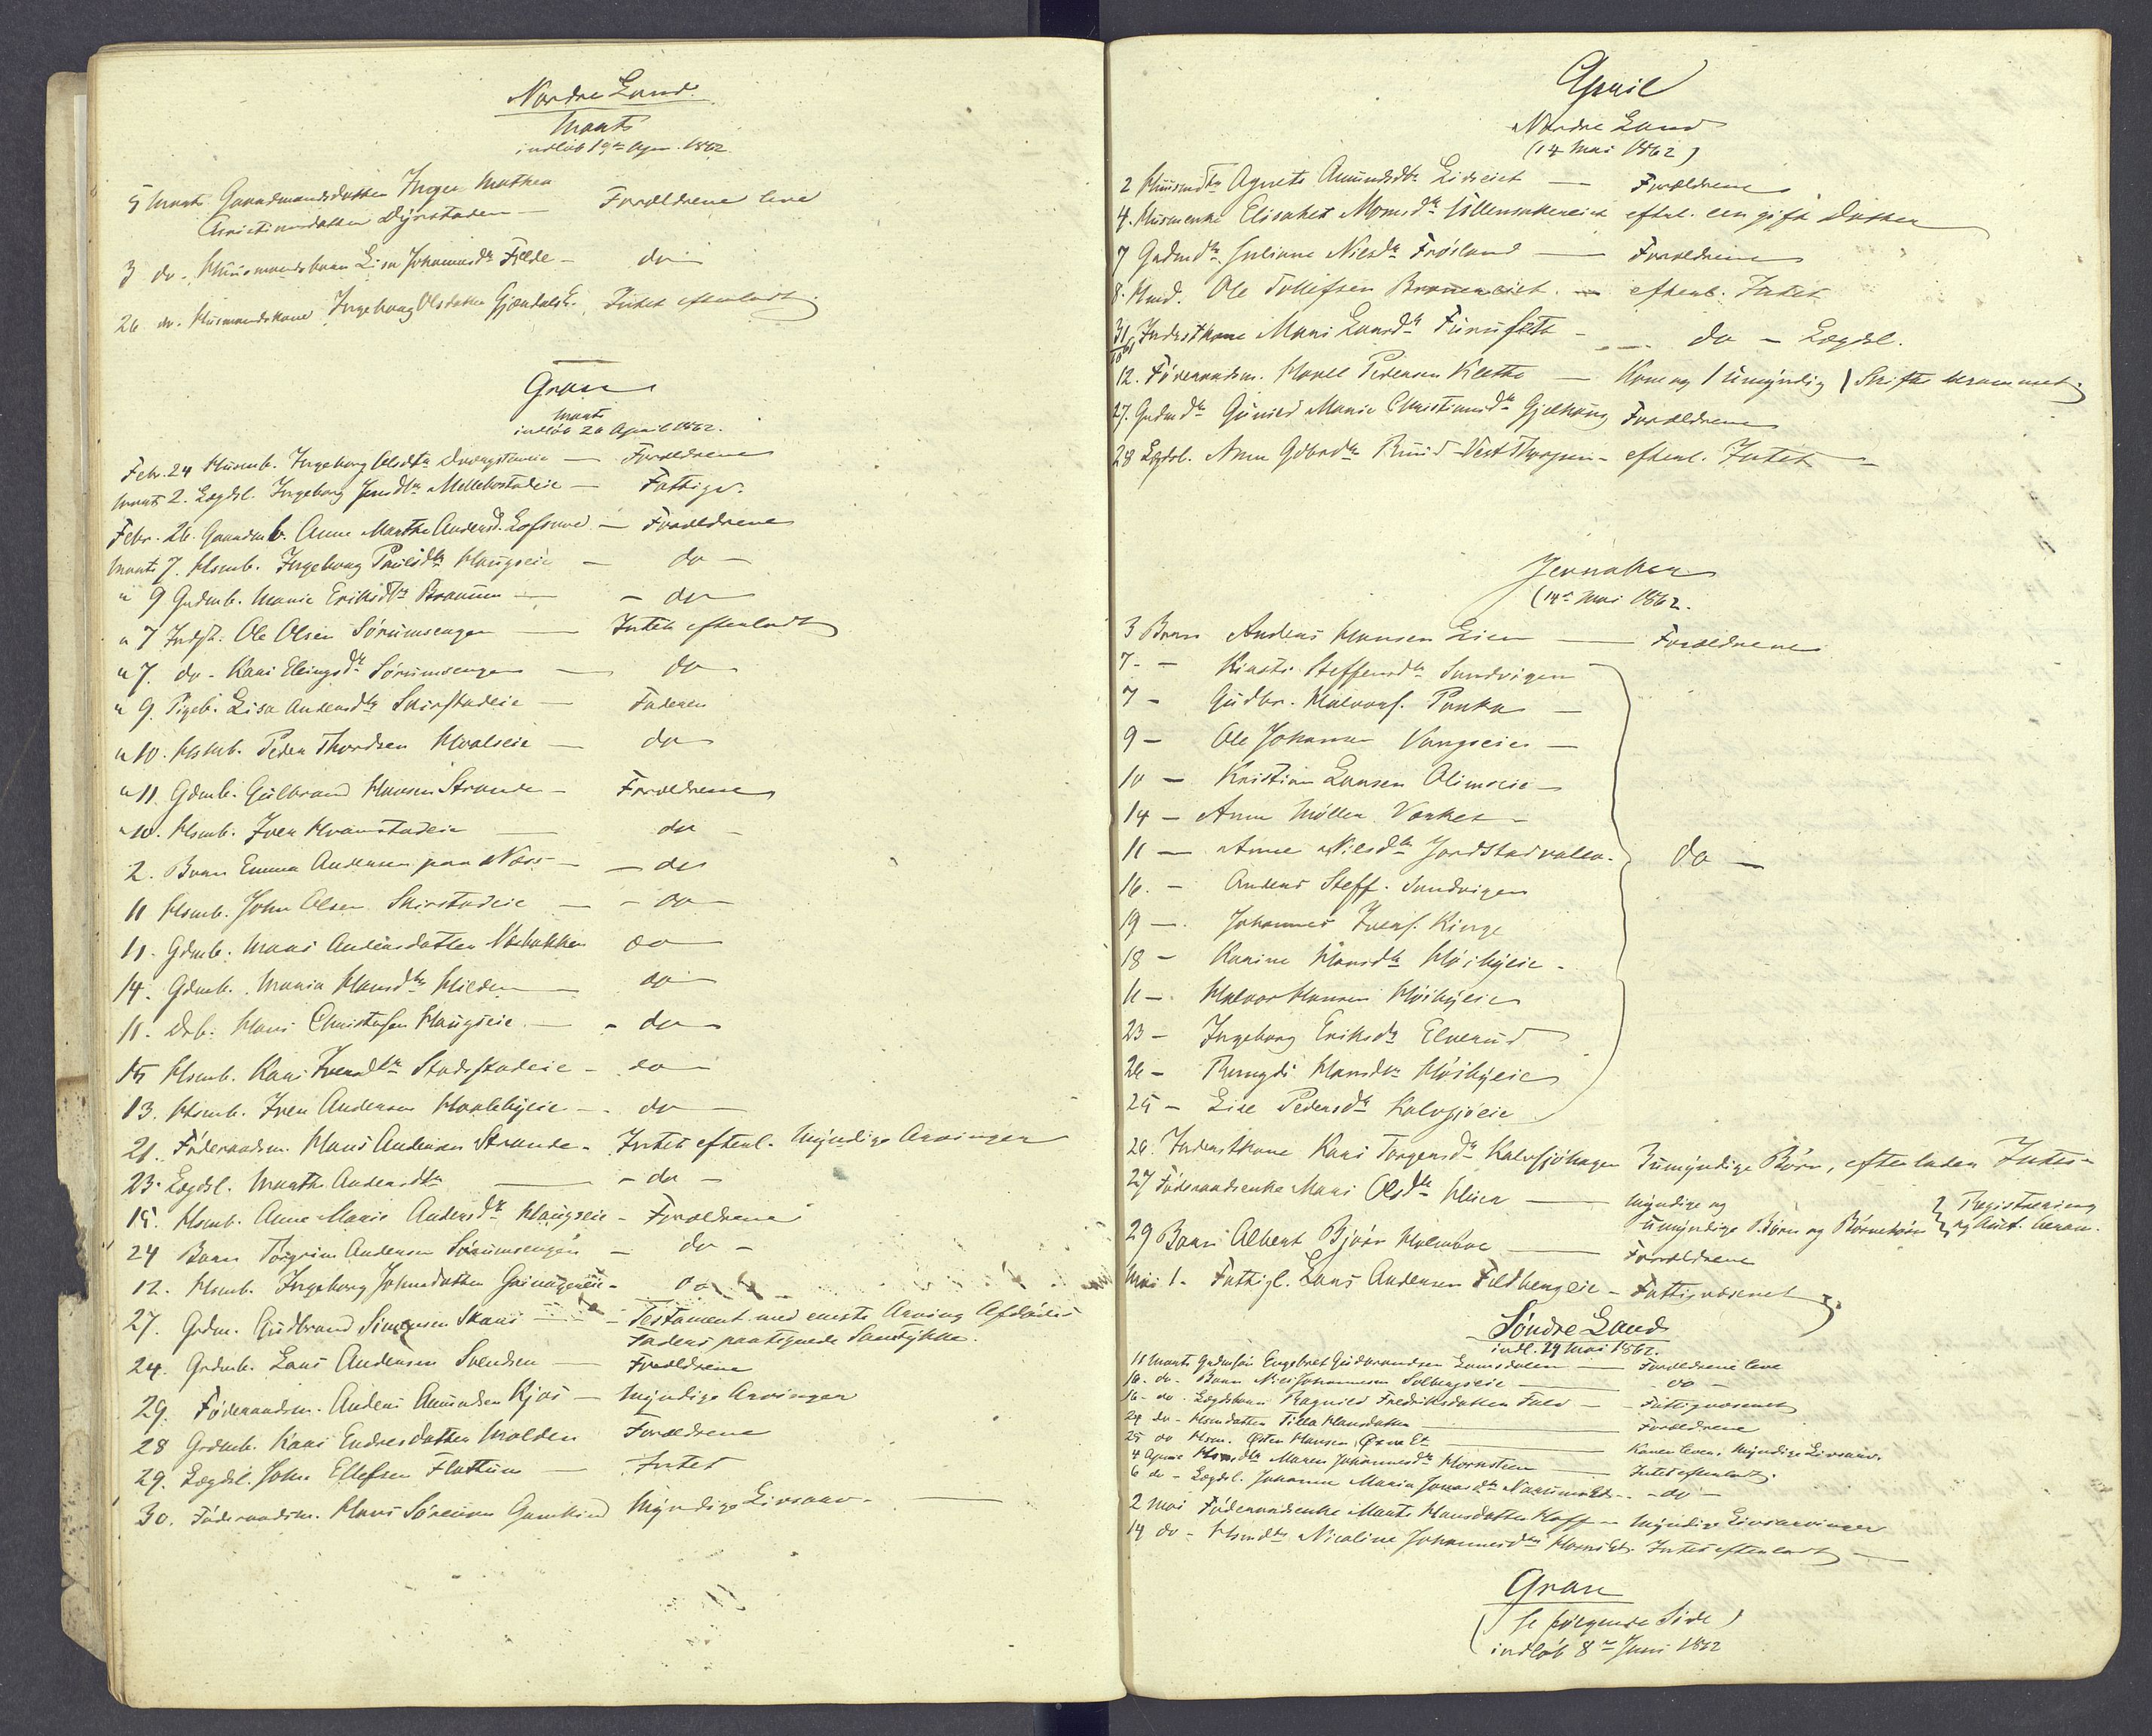 Nordre Land
Marts
indløb 19de Apr. 1862
5 Marts Gaardmandsdatter Inger Mathea
Christiansdatter Dÿnstaden — Forældrene leve
3 do. Huusmandsbarn Lisa Johannesdr Fælde — do —
26 do. Huusmandskone Ingeborg Olsdatter Gjærdalse. Intet efterladt
Gran
Marts
indløb 20 April 1862.
Febr. 24 Husmb. Ingeborg Olsdtr — Forældrene
Marts 2. Lægdsl. Ingeborg Jensdtr Mellebostadeie — Fattigv.
Febr. 26. Gaardmb. Anne Marthe Andersd. — Forældrene
Marts 7. Hsmb. Ingeborg Paulsdtr Haugseie — do —
" 9 Grdmb. Marie Eriksdtr — do —
" 7 Indst. Ole Olsen Sørumsengen — Intet efterladt
" 7. do. Kari Elingsdr Sørumsengen — do
" 9. Pigeb. Lisa Andersdtr Skirstadeie — Faderen
" 10. Hsmb. Peder Thordsen Hvalseie — do
" 11. Gdmb. Gulbrand Hansen Strande — Forældrene
" 10. Hsmb. Iver — do —
2. Barn Emma Andersen paa Næs — do
11 Hsmb. John Olsen Skirstadeie — do —
11. Gdmb. Mari Andersdatter do —
14. Gdmb. Maria Hansdtr Hilden — do —
11. Drb. Hans Christofsen Haugseie — do —
15 Hsmb. Kari Iversdtr Stadsstadeie — do —
13. Hsmb. Iver Andersen — do —
21. Føderaadsm. Hans Andersen Strande — Intet efterl. Myndige Arvinger
23. Lægdsl. Marthe Andersdtr — do —
15. Hsmb. Anne Marie Andersdr Haugseie — Forældrene
24 Barn Torgrim Andersen Sørumsengen — do —
12. Hsmb. Ingeborg Johnsdatter — do
27. Grdm. Gudbrand Simensen Skari — Testament med eneste Arving Afdødes
Faders paategnede Samtykke.
24. Grdmb. Lars Andersen Svendsen — Forældrene
29. Føderaadsm. Anders Amundsen Kjos — Myndige Arvinger
28 Grdmb. Kari Endresdatter Molden Forældrene
29. Lægdsl. John Ellefsen Flattum — Intet
30. Føderaadsm. Hans Sørensen Myndige Livsarv.
April
Nordre Land
(14 Mai 1862)
2 Huusmdtr Agnete Amundsdtr Lidseiet — Forældrene
4. Husmenke Elisabet efterl. een gift Datter
7 Grdmdtr. Juliane Nielsdr Frøsland — Forældrene
8. Hmd. Ole Tollefsen — efterl. Intet
31/10 61 Inderstkone Mari Larsdtr Furusæth — do — Lægdsl.
12. Føderaadsm. Havel Pedersen Klette — Kone og 1 umyndig | Skifte berammet
27. Grdmdtr Gunild Marie Christiansdr Gjelhaug Forældrene
28 Lægdsl. Anne Gdbrdtr Ruud Vest Thorpen — efterl. Intet
Jevnaker
(14de Mai 1862.
3 Barn Anders Hansen Lien — Forældrene
7 — Kirsti Steffensdtr Sundvigen
7 — Gudbr. Halvors. Ponka —
9 — Ole Johansen Vangseie —
10 — Kristian Larsen Olimseie —
14 — Anne Møller Værket —
11 — Anne Nielsdtr — do —
16. — Anders Steff. Sundvigen
19 — Johannes Ivers. Kinge
18 — Karine Hansdtr Høibyeie —
11 — Halvor Hansen Høibyeie
23 — Ingeborg Eriksdr Elverud
26 — Rangdi Hansdtr Høibyeie
25 — Lise Pedersdtr Kalvsjøeie
20. Inderstkone Kari Torgersdr Kalvsjøhagen 3 umyndige Børn, efterladen Intet
27 Føderaadsenke Mari Olsdtr — Myndige og
umyndige Børn og Børnebørn } Registrering
og Auct. beram.
29 Barn Albert Bjørn Holmboe — Forældrene
Mai 1. Fattigl. Lars Andersen — Fattigvæsenet
Søndre Land
indl. 29 Mai 1862.
11 Marts Grdmsøn Engebret Gudbrandsen — Forældrene leve
16. do. Barn Niels Johannesen Solbergseie — do —
16. do. Lægdsbarn Ragnild Fredriksdatter — Fattigvæsenet
24 do. Hsmdatter Tilla Hansdatter — Forældrene
25 do Hsm. Østen Hansen — Konen lever, Myndige Livsarv.
4 April Hsmdtr Maren Johannesdtr Hornsteen — Intet efterladt.
6 do. Lægdsl. Johanne Maria — do —
2 Mai Føderaadsenke Marte Hansdatter Hoff — Myndige Livsarvinger
14 do. Hsmdtr Nicoline Johannesdtr Intet efterladt —
Gran
(se følgende Side)
indløb 8de Juni 1862